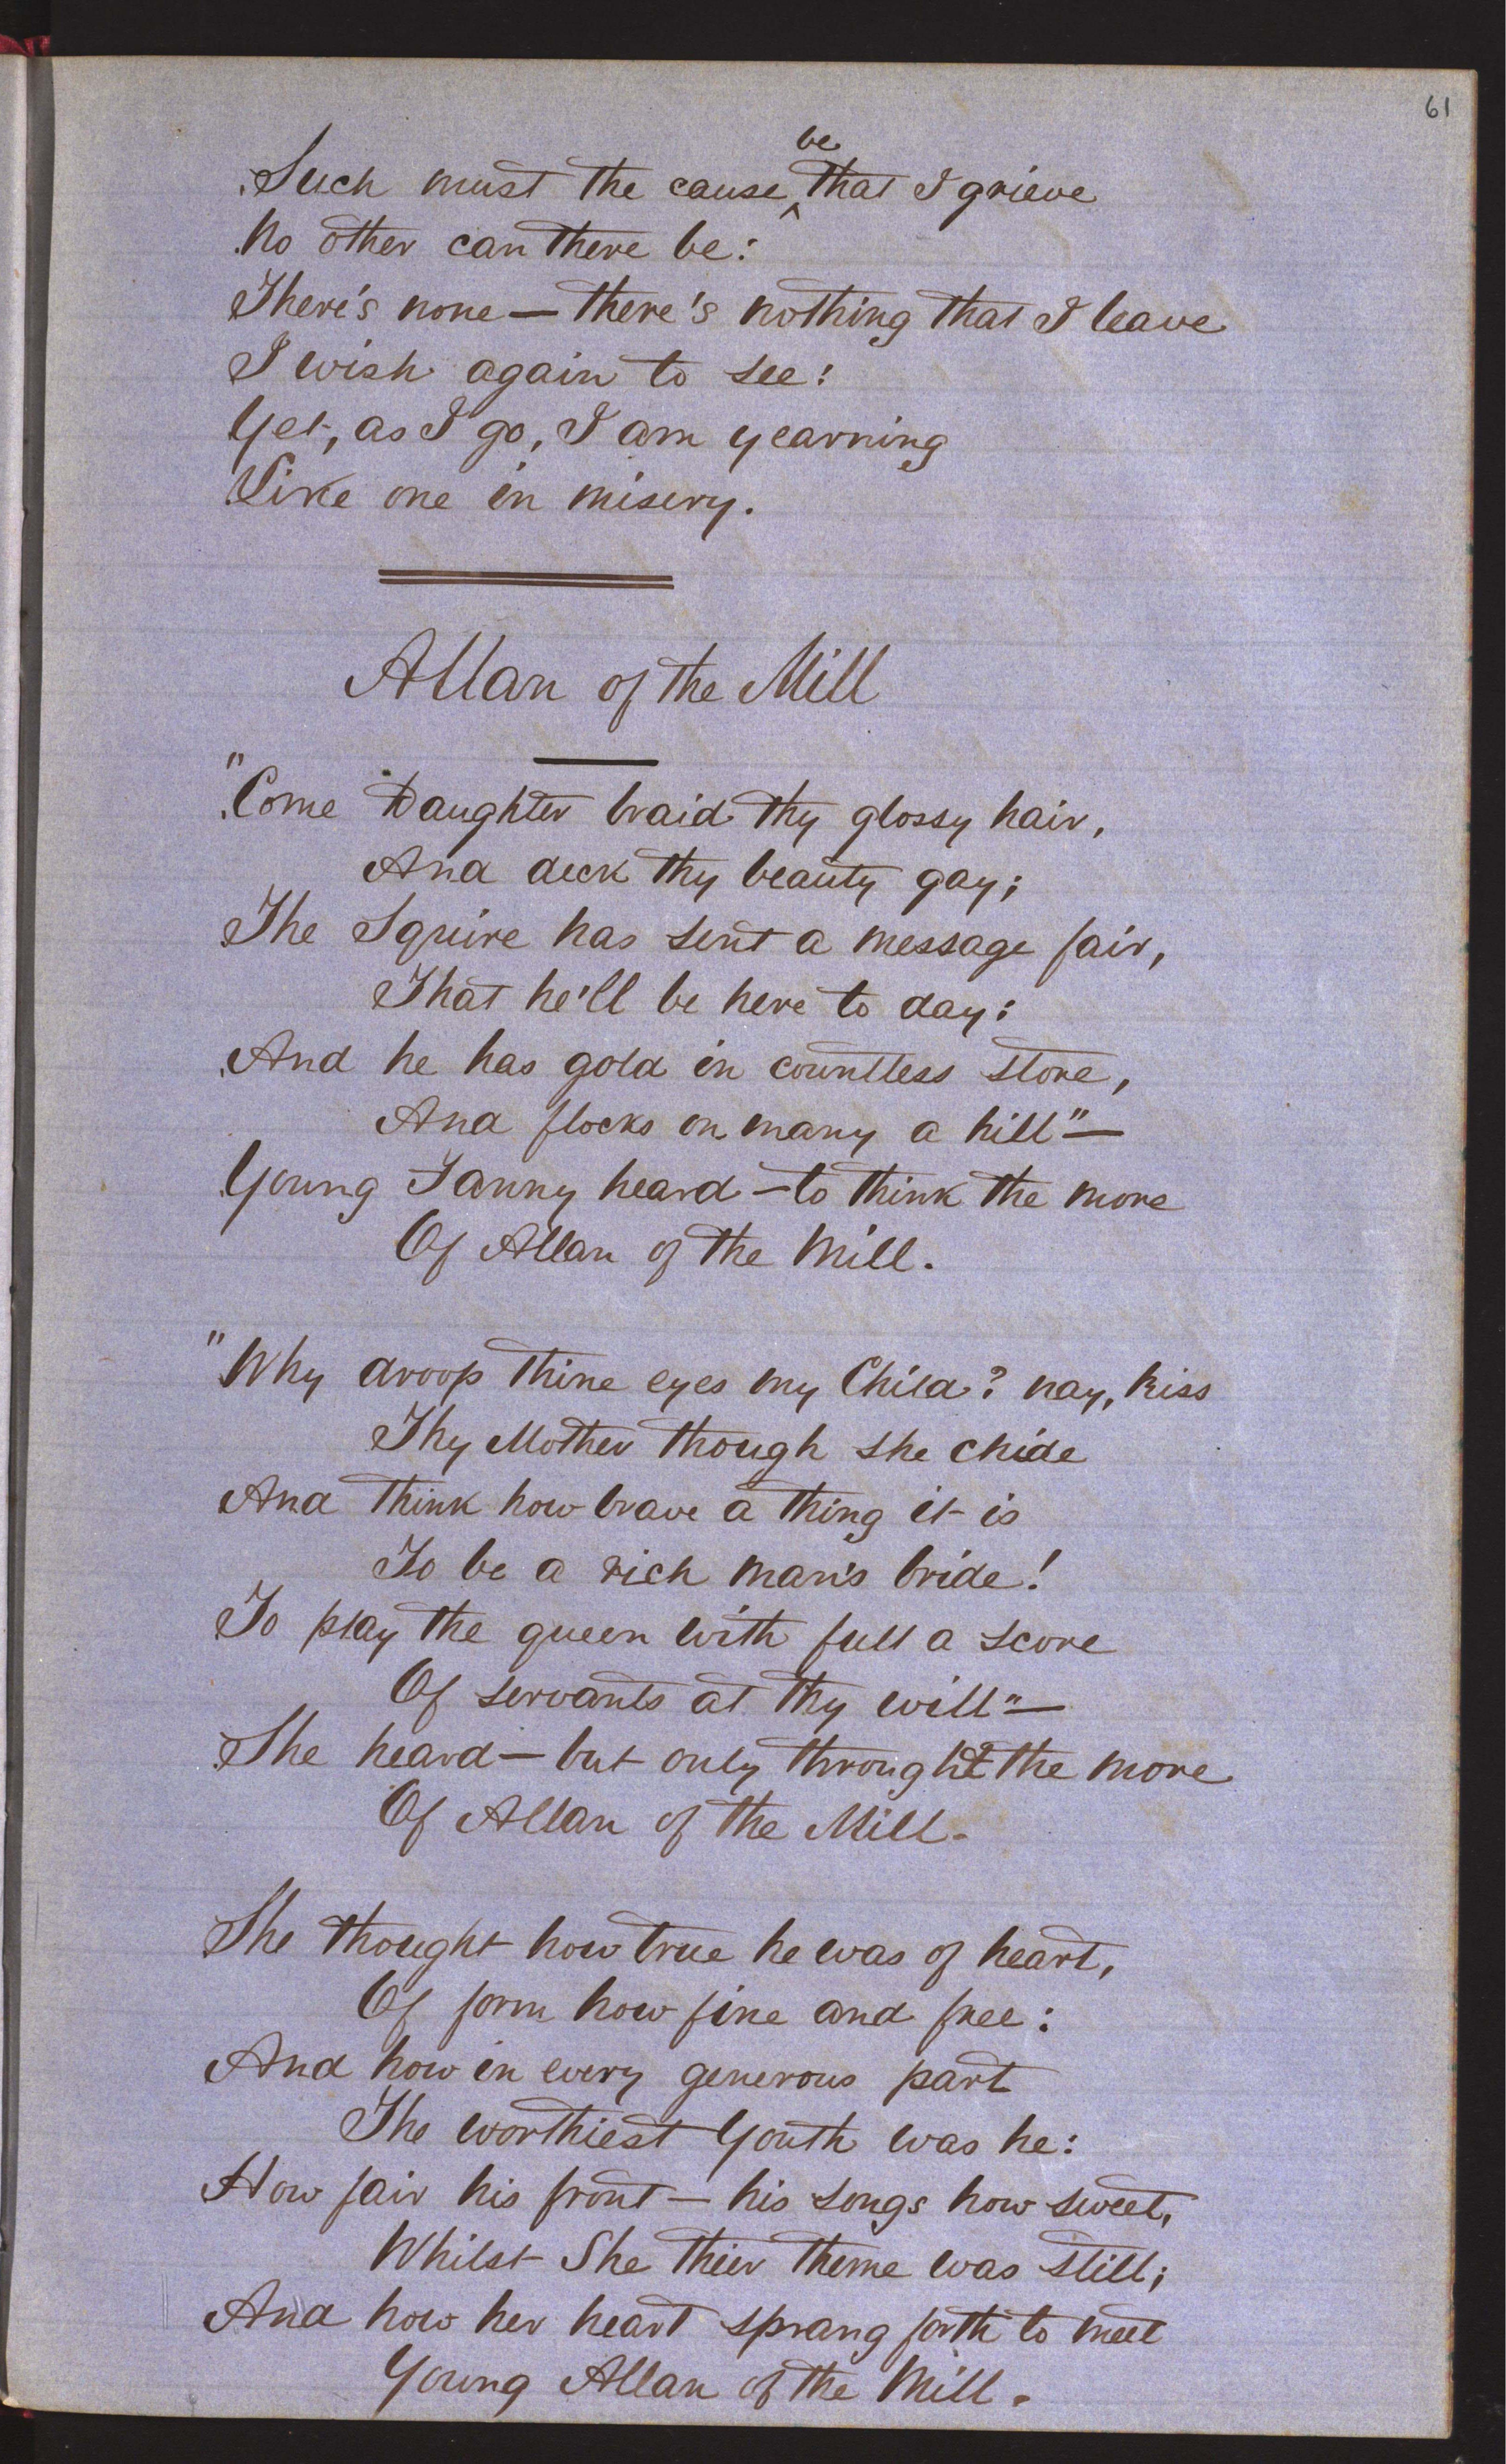 61
Such must the cause be that I grieve
No other can there be:
There's none — there's nothing that I leave
I wish again to see:
Yet, as I go, I am yearning
Like one in misery.
Allan of the Mill
"Come Daughter braid thy glossy hair,
And deck thy beauty gay;
The Squire has sent a message fair,
That he'll be here to day:
And he has gold in countless store,
And flocks on many a hill" —
Young Fanny heard — to think the more
Of Allan of the Mill.
"Why droop thine eyes my Child? nay, kiss
Thy Mother though she chide
And think how brave a thing it is
To be a rich man's bride!
To play the queen with full a score
Of servants at thy will" —
She heard — but only throught the more
Of Allan of the Mill.
She thought how true he was of heart,
Of form how fine and free:
And how in every generous part
The worthiest Youth was he:
How fair his front — his songs how sweet,
Whilst She thier theme was still;
And how her heart sprang forth to meet
Young Allan of the Mill.